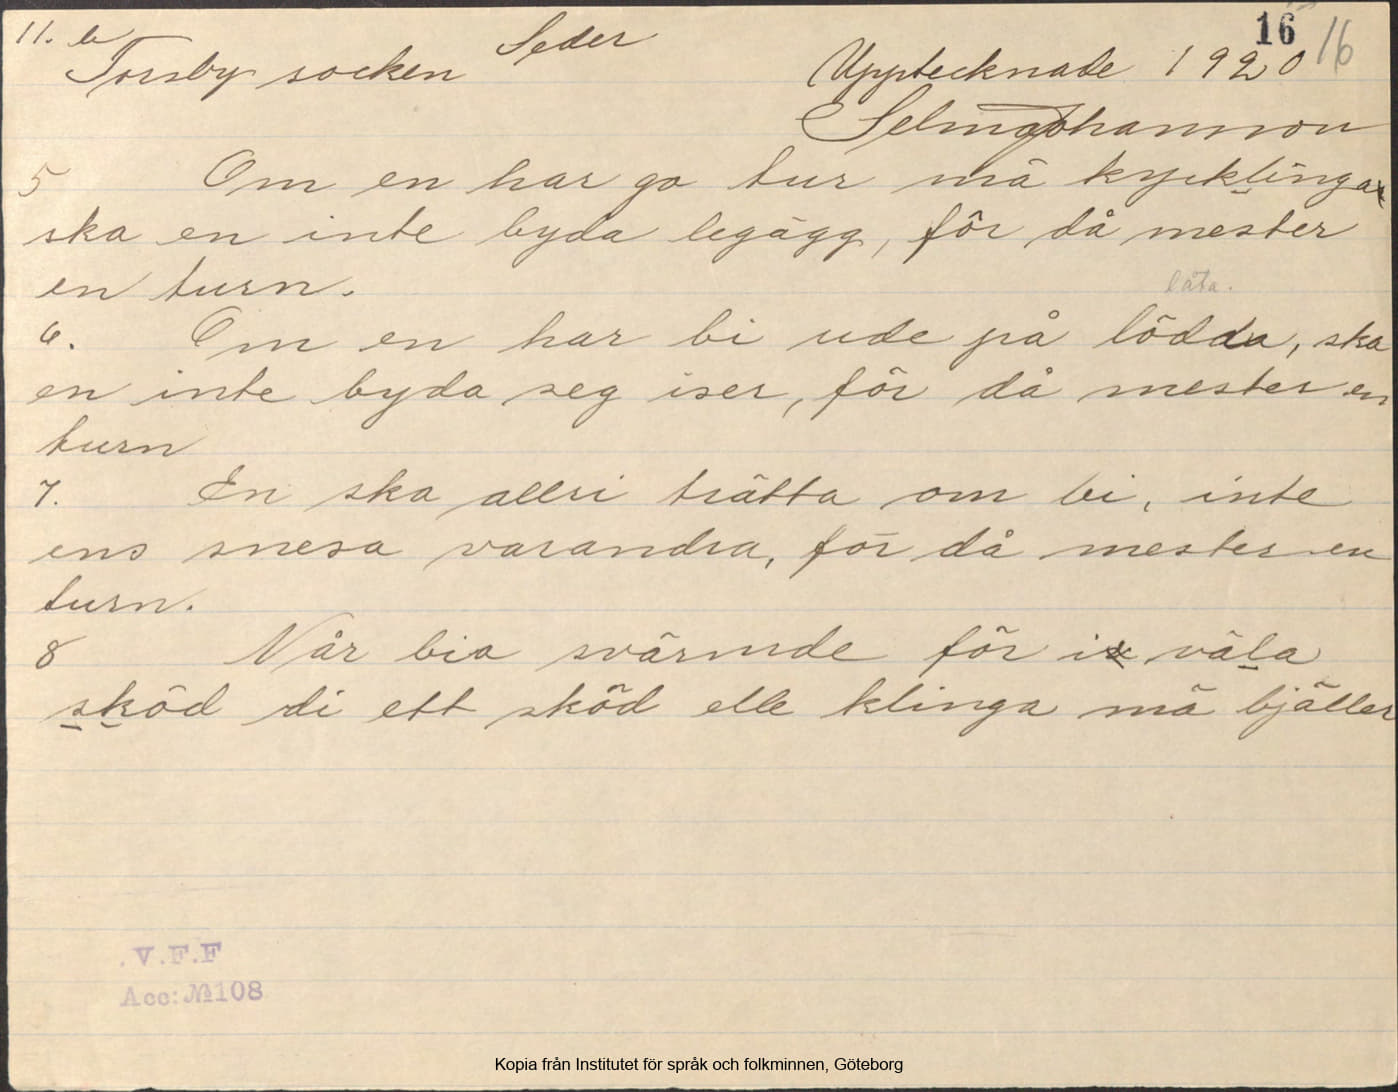 11. b Seder 16 16
Torsby socken Upptecknade 1920
Selma Johansson
5 Om en har go tur mä kycklinga
ska en inte byda legägg, för då mester
en turn.
låta.
6. Om en har bi ude på lödda, ska
en inte byda seg iser, för då mester en
turn
7. En ska allri trätta om bi, inte
ens snesa varandra, för då mester en
turn.
8 Når bia svärmde för i väla
sköd di ett sköd elle klinga mä bjäller
V.F.F
Acc: №108
Kopia från Institutet för språk och folkminnen, Göteborg